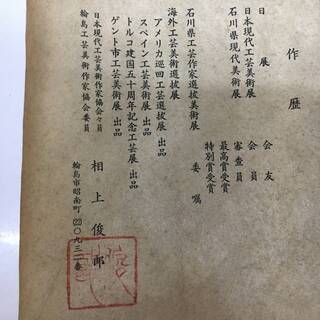 作歴
日展 会友
日本現代工芸美術展 会員
石川県現代美術展 審査員
最高賞受賞
特別賞受賞
石川県工芸作家選抜展 委嘱
海外工芸美術選抜展
アメリカ巡回工芸選抜展 出品
スペイン工芸美術展 出品
トルコ建国五十周年記念工芸展 出品
ゲント市工芸美術展 出品
日本現代工芸美術作家協会々員
輪島工芸美術作家協会委員
相上俊郎
輪島市昭南町 (22)〇九三二番